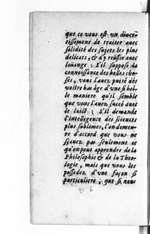 que ce vous est un divertissement
tissement de traiter avec
solidité des sujets les plus
delicats, & d'y reüssir avec
loüange ; s'il suppose la
connoissance des belles choses,
vous l'avez puisé dés
vostre bas âge d'une si belle
maniere qu'il semble
que vous l'avez succé avec
le laict : s'il demande
l'intelligence des sciences
plus sublimes, l'on demeure
d'accord que vous ne
sçavez pas seulement ce
qu'on peut apprendre de la
Philosophie & de la Theologie,
mais que vous les
possedez d'une façon si
particuliere, que si nous